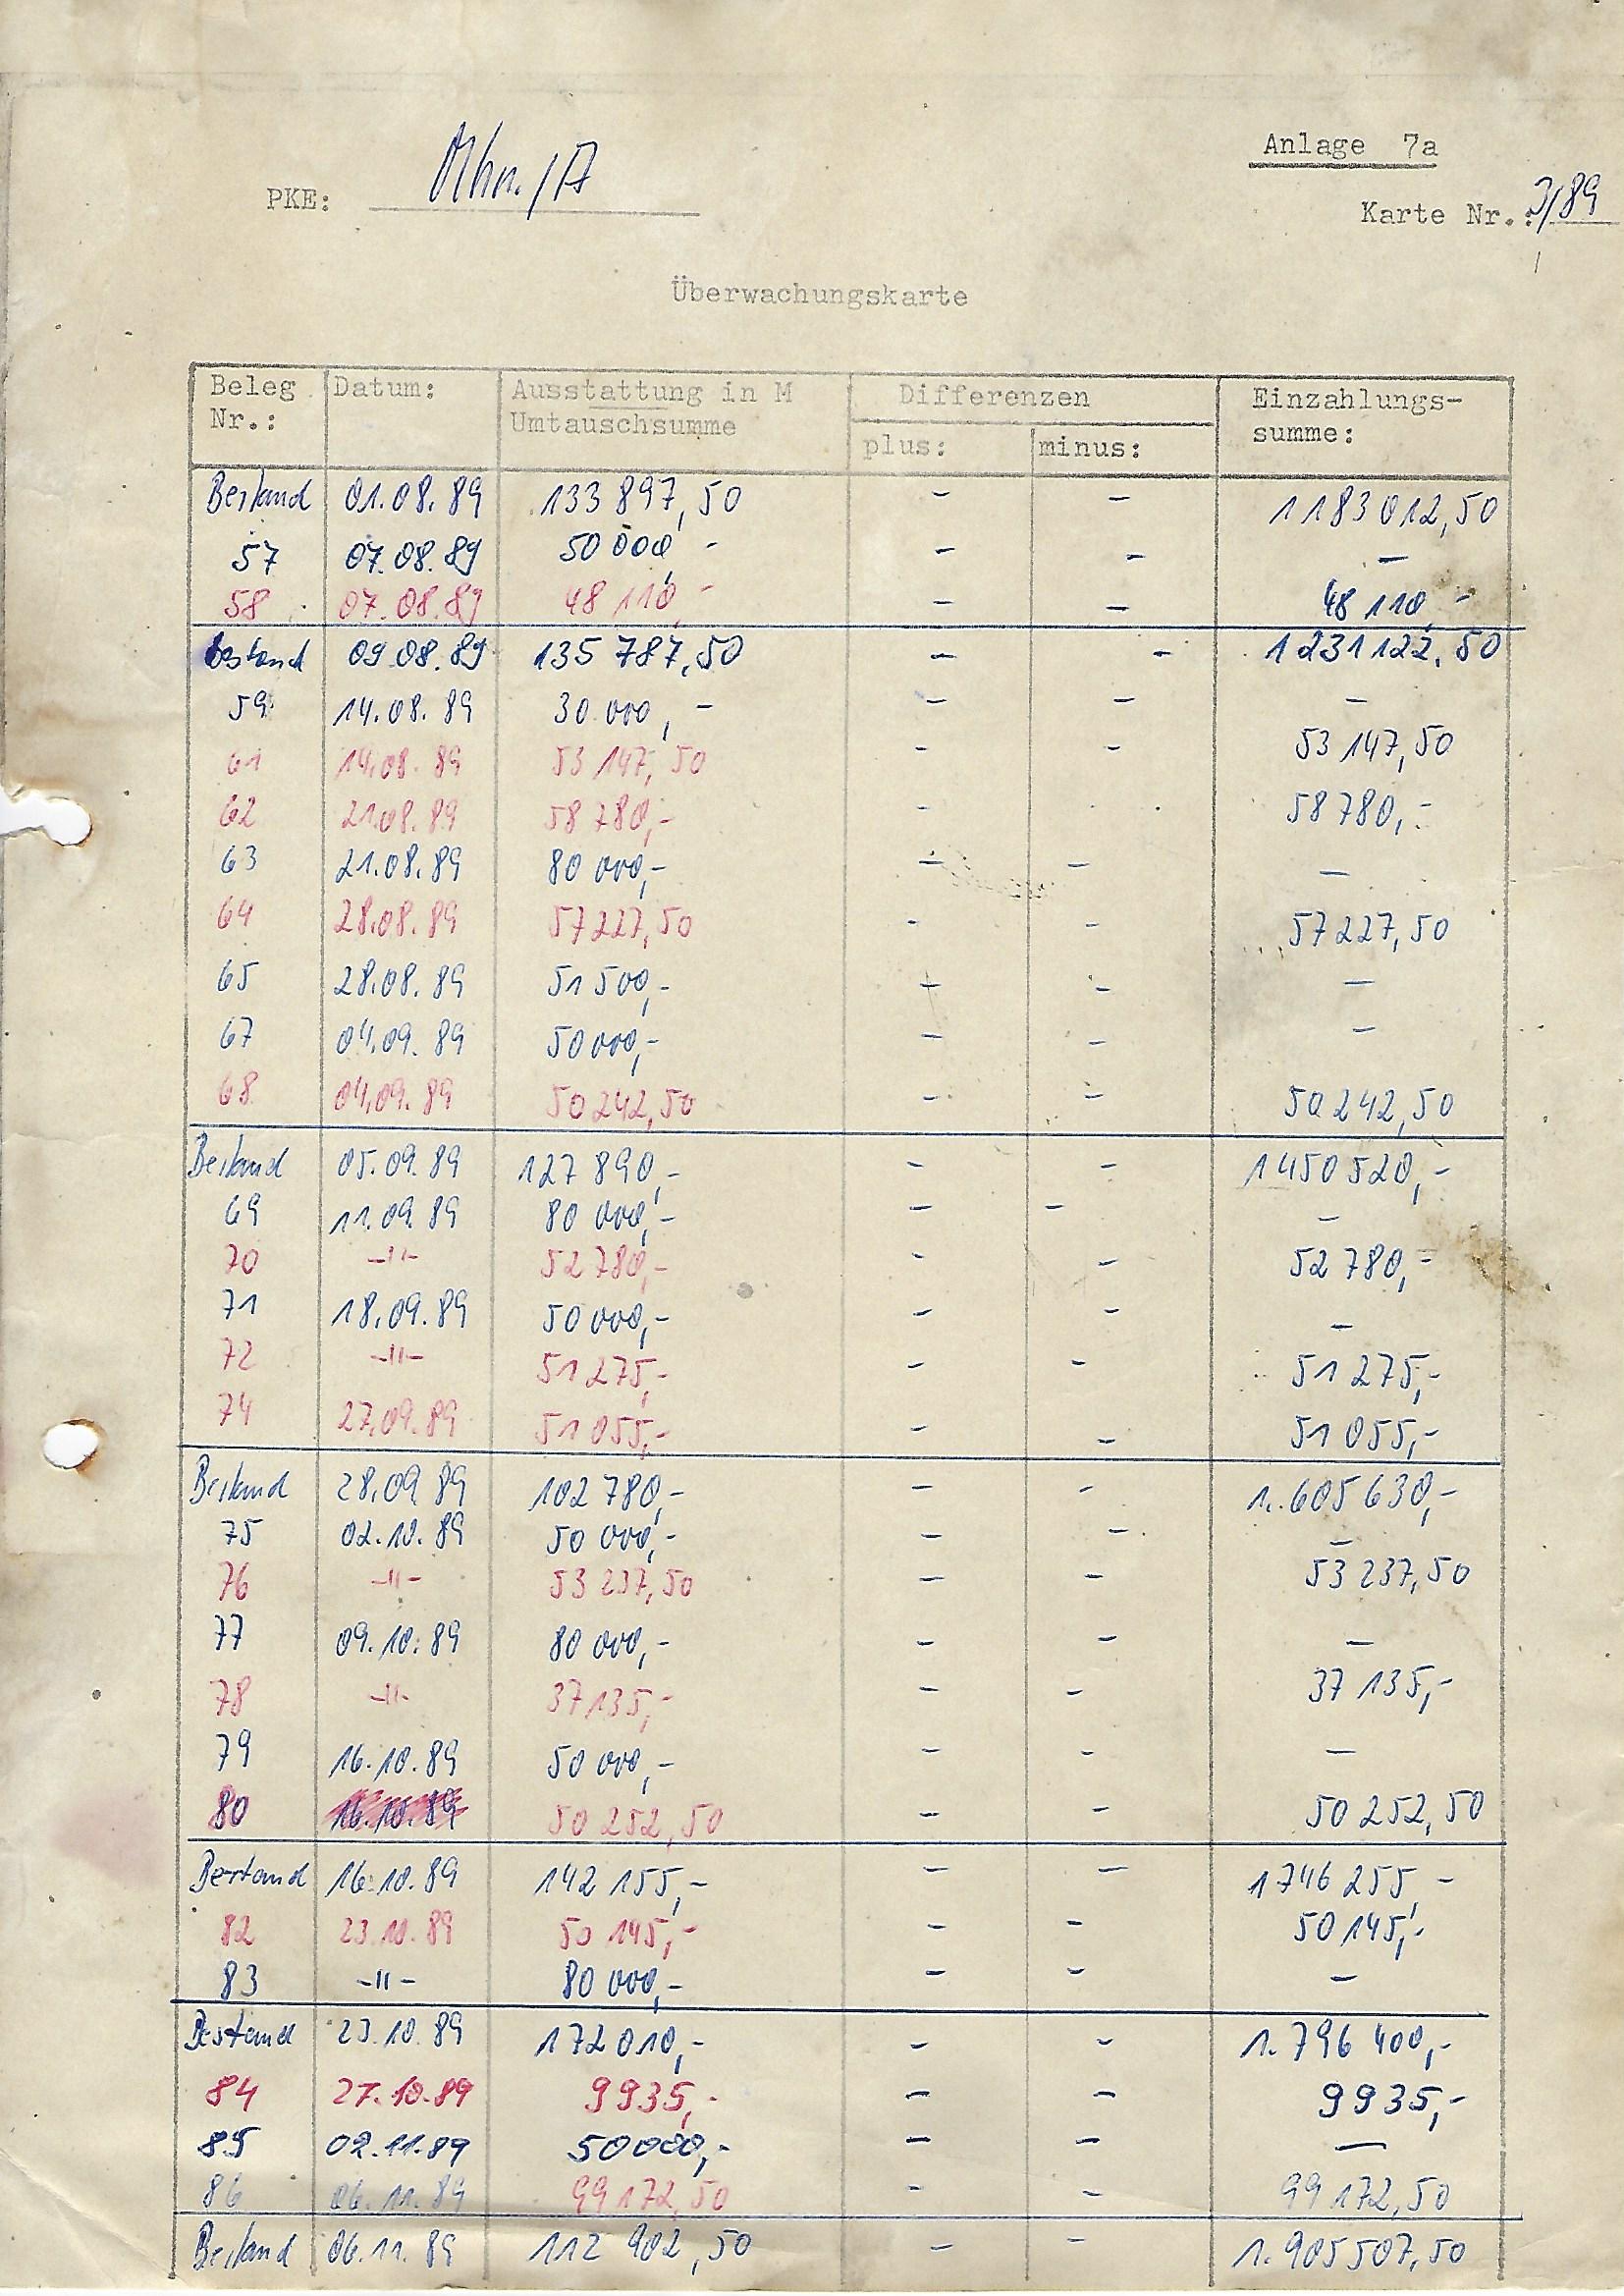 Anlage 7a
PKE: Mhn./A
Karte Nr.: 3/89
Überwachungskarte
Beleg Nr.: Datum: Ausstattung in M Umtauschsumme Differenzen plus: minus: Einzahlungs-summe:
Bestand 01.08.89 133 897,50 - - 1183 012,50
57 07.08.89 50 000,- - - -
58 07.08.89 48 110,- - - 48 110,-
Bestand 09.08.89 135 787,50 - - 1231122,50
59 14.08.89 30 000,- - - -
61 14.08.89 53 147,50 - - 53 147,50
62 21.08.89 58 780,- - - 58 780,-
63 21.08.89 80 000,- - - -
64 28.08.89 57 227,50 - - 57 227,50
65 28.08.89 51 500,- - - -
67 04.09.89 50 000,- - - -
68 04.09.89 50 242,50 - - 50 242,50
Bestand 05.09.89 127 890,- - - 1450 520,-
69 11.09.89 80 000,- - - -
70 -"- 52 780,- - - 52 780,-
71 18.09.89 50 000,- - - -
72 -"- 51 275,- - - 51 275,-
74 27.09.89 51 055,- - - 51 055,-
Bestand 28.09.89 102 780,- - - 1.605 630,-
75 02.10.89 50 000,- - - -
76 -"- 53 237,50 - - 53 237,50
77 09.10.89 80 000,- - - -
78 -"- 37 135,- - - 37 135,-
79 16.10.89 50 000,- - - -
80 16.10.89 50 252,50 - - 50 252,50
Bestand 16.10.89 142 155,- - - 1746 255,-
82 23.10.89 50 145,- - - 50 145,-
83 -"- 80 000,- - - -
Bestand 23.10.89 172 010,- - - 1.796 400,-
84 27.10.89 9935,- - - 9935,-
85 02.11.89 50000,- - - -
86 06.11.89 99 172,50 - - 99 172,50
Bestand 06.11.89 112 902,50 - - 1.905 507,50